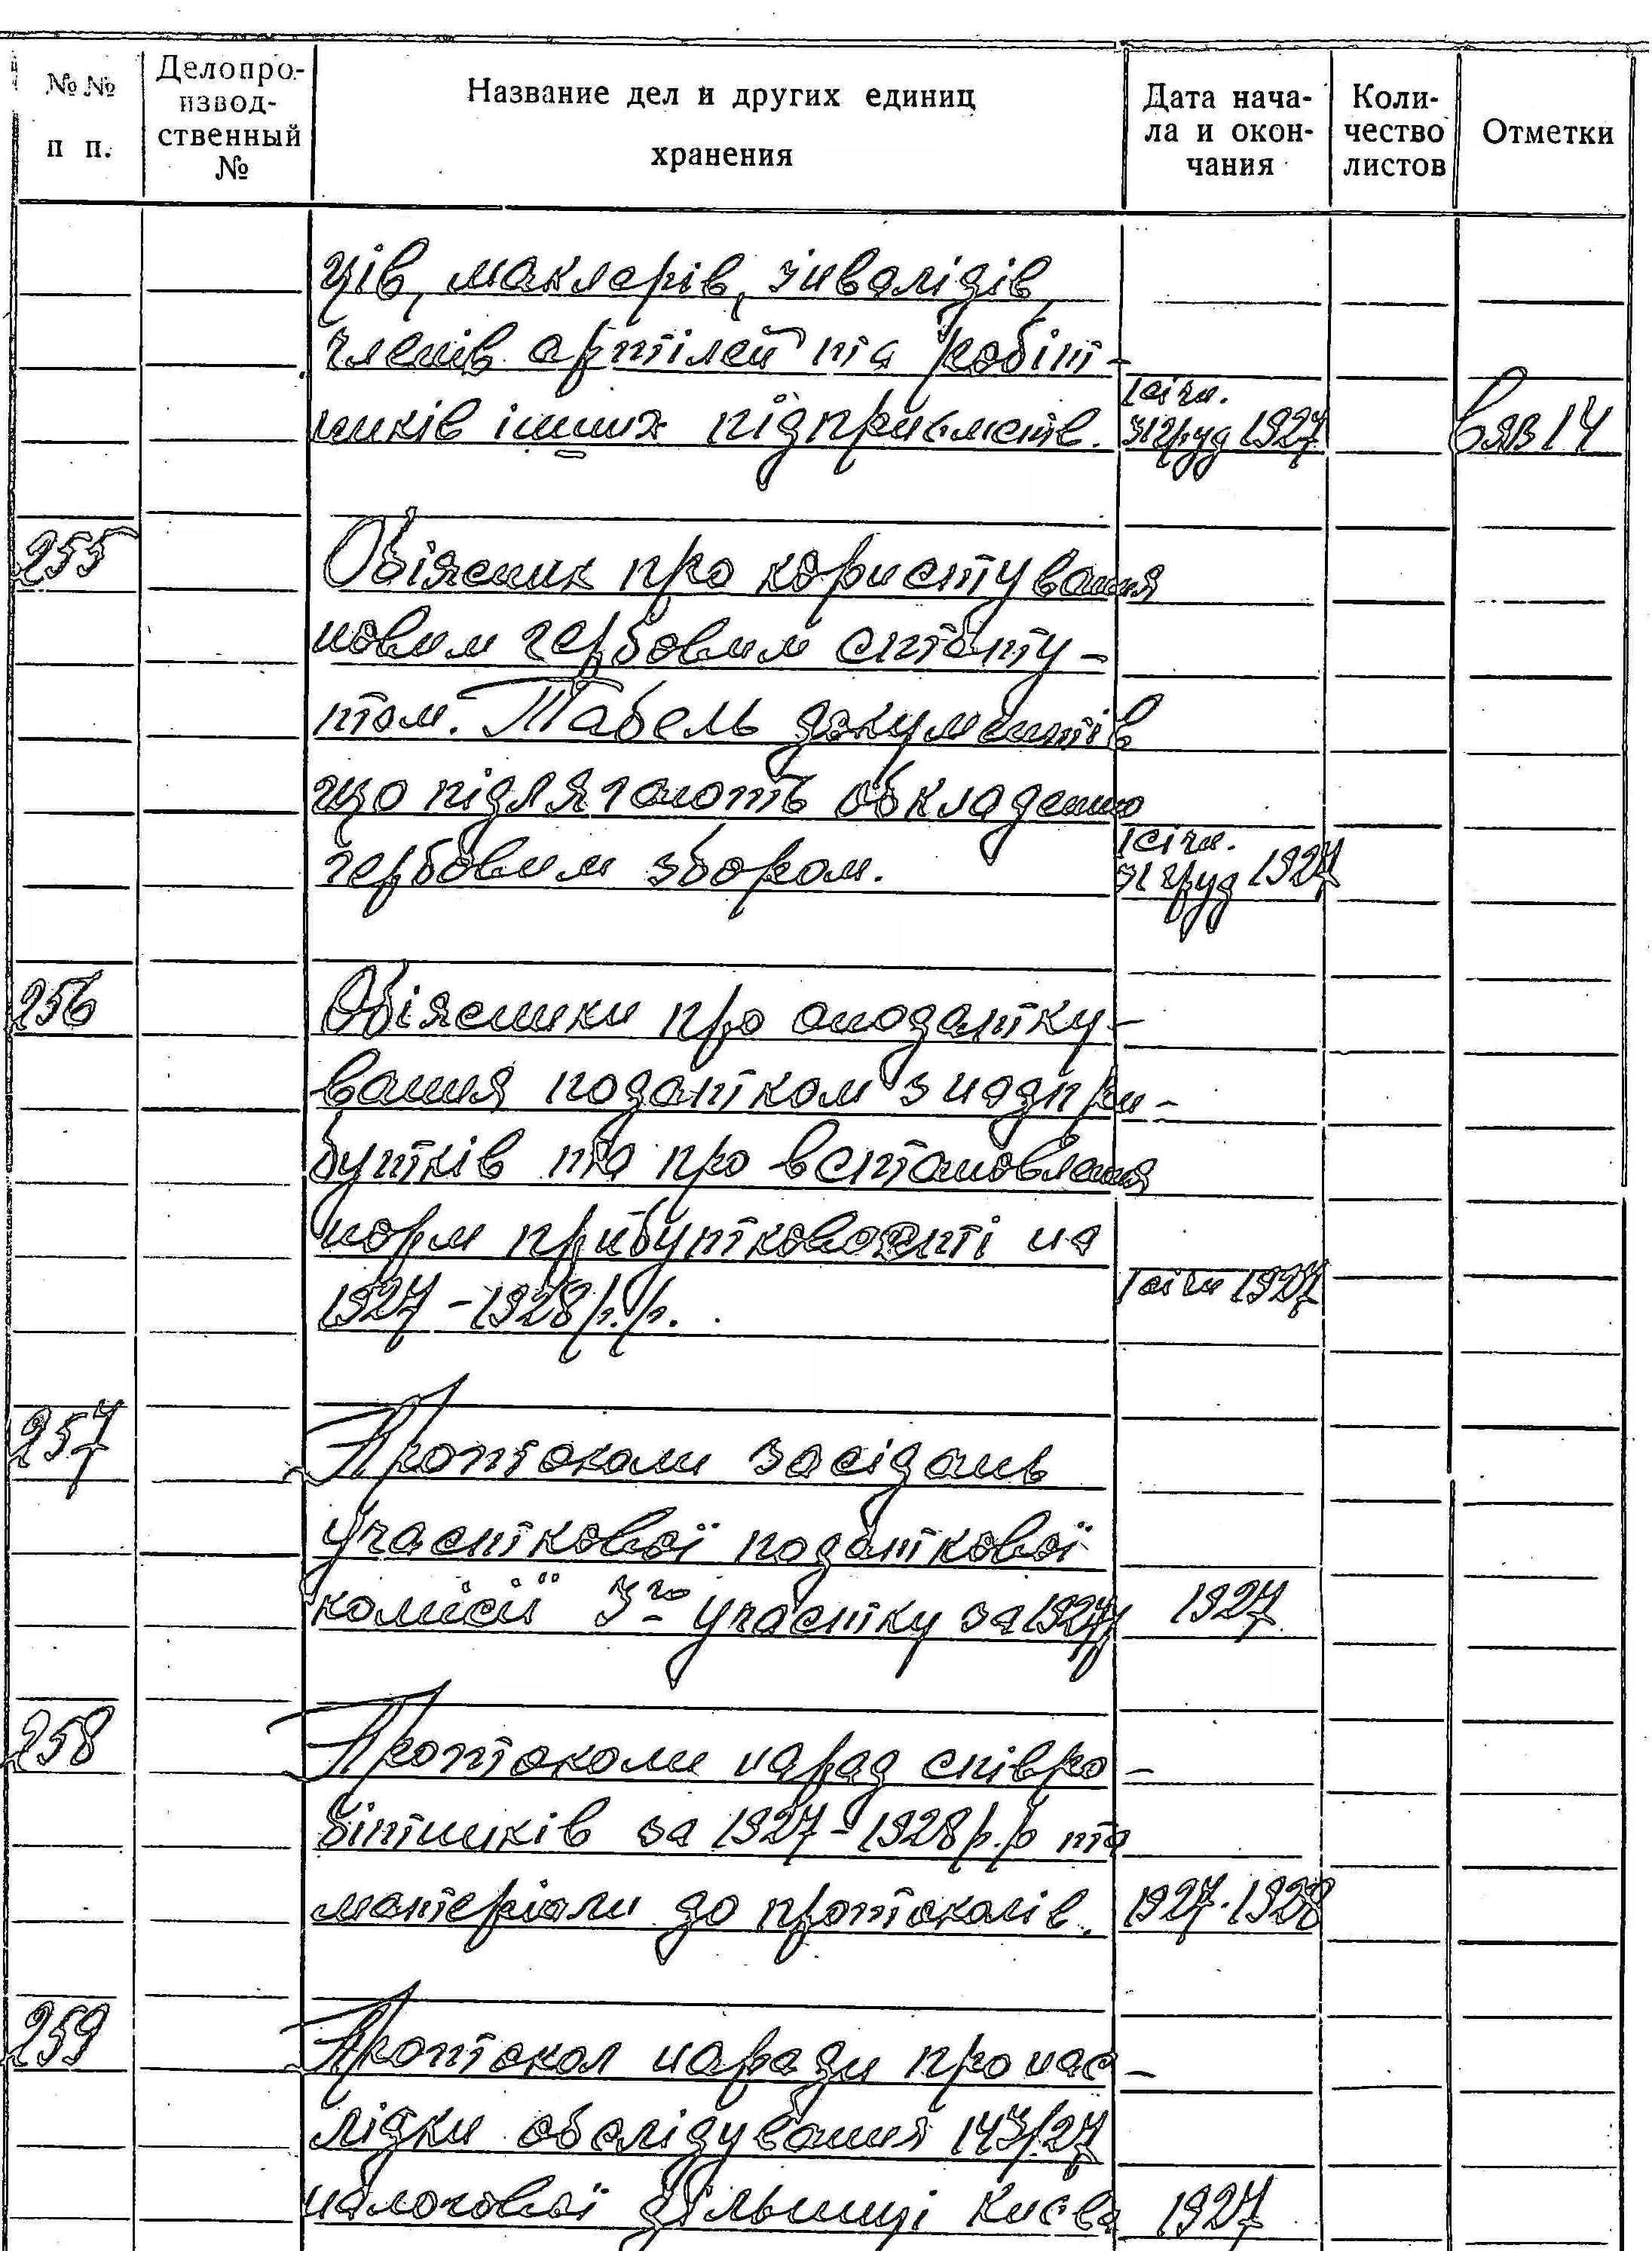 № № п п.
Делопро-
извод-
ственный
№
Название дел и других единиц
хранения
Дата нача-
ла и окон-
чания
Коли-
чество
листов
Отметки
ців, маклерів, інвалідів,
членів артілей та робіт-
ників інших підприємств. 1 січн.
31 груд 1927 Вяз 14
255 Обіясник про користування
новим гербовим стату-
том. Табель документів
що підлягають обкладенню
гербовим збором. 1 січн.
31 груд 1927
256 Обіясники про оподатку-
вання податком з надпри-
бутків та про встановлення
норм прибутковости на
1927-1928 р.р. 1 січн 1927
257 Протоколи засідань
участкової податкової
комісії 3го участку за 1927р 1927
258 Протоколи нарад співро-
бітників за 1927-1928 р.р та
матеріали до протоколів. 1927-1928
259 Протокол наради про нас-
лідки обслідування 143/27
налогової дільниці Києва 1927